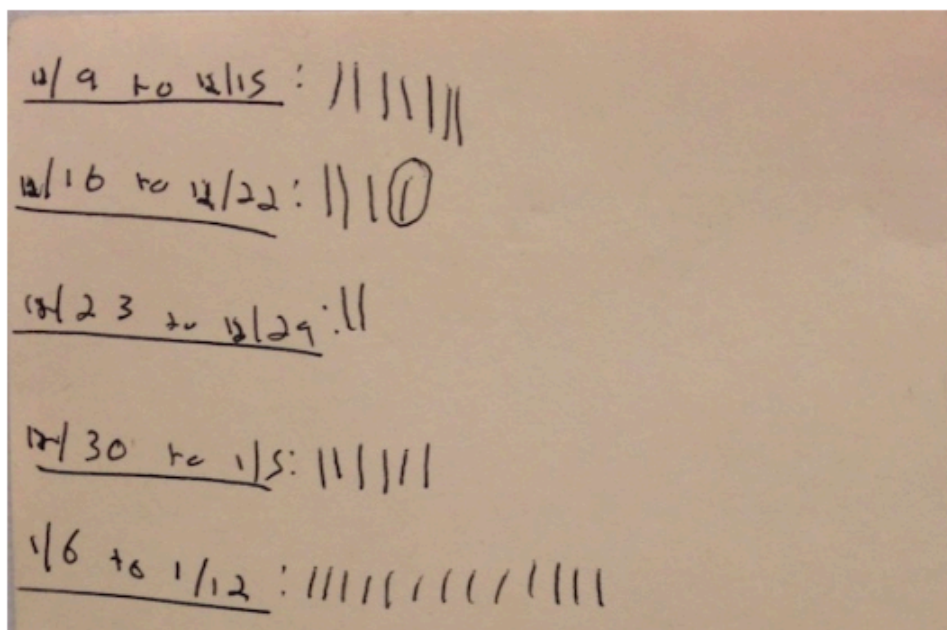 12/9 to 12/15: ||||||||
12/16 to 12/22: ||||
12/23 to 12/29: ||
12/30 to 1/5: |||||||
1/6 to 1/12: |||||||||||||||